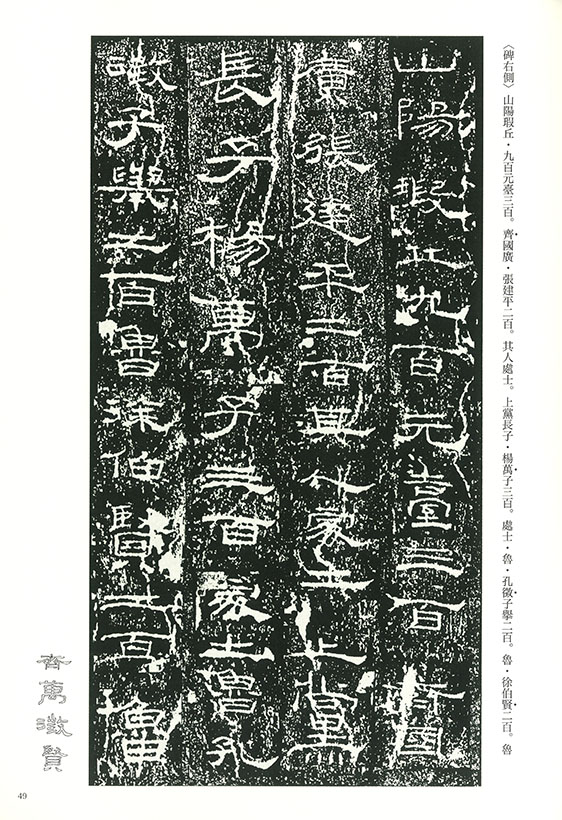 〈碑右側〉山陽瑕丘・九百元臺三百。齊國廣・張建平二百。其人處士。上黨長子・楊萬子三百。處士・魯・孔徵子擧二百。魯・徐伯賢二百。魯
山陽瑕丘九百元臺三百齊國
廣張建平二百其人處士上黨
長子楊萬子三百處士魯孔
徵子擧二百魯徐伯賢二百魯
齊萬徵賢
49